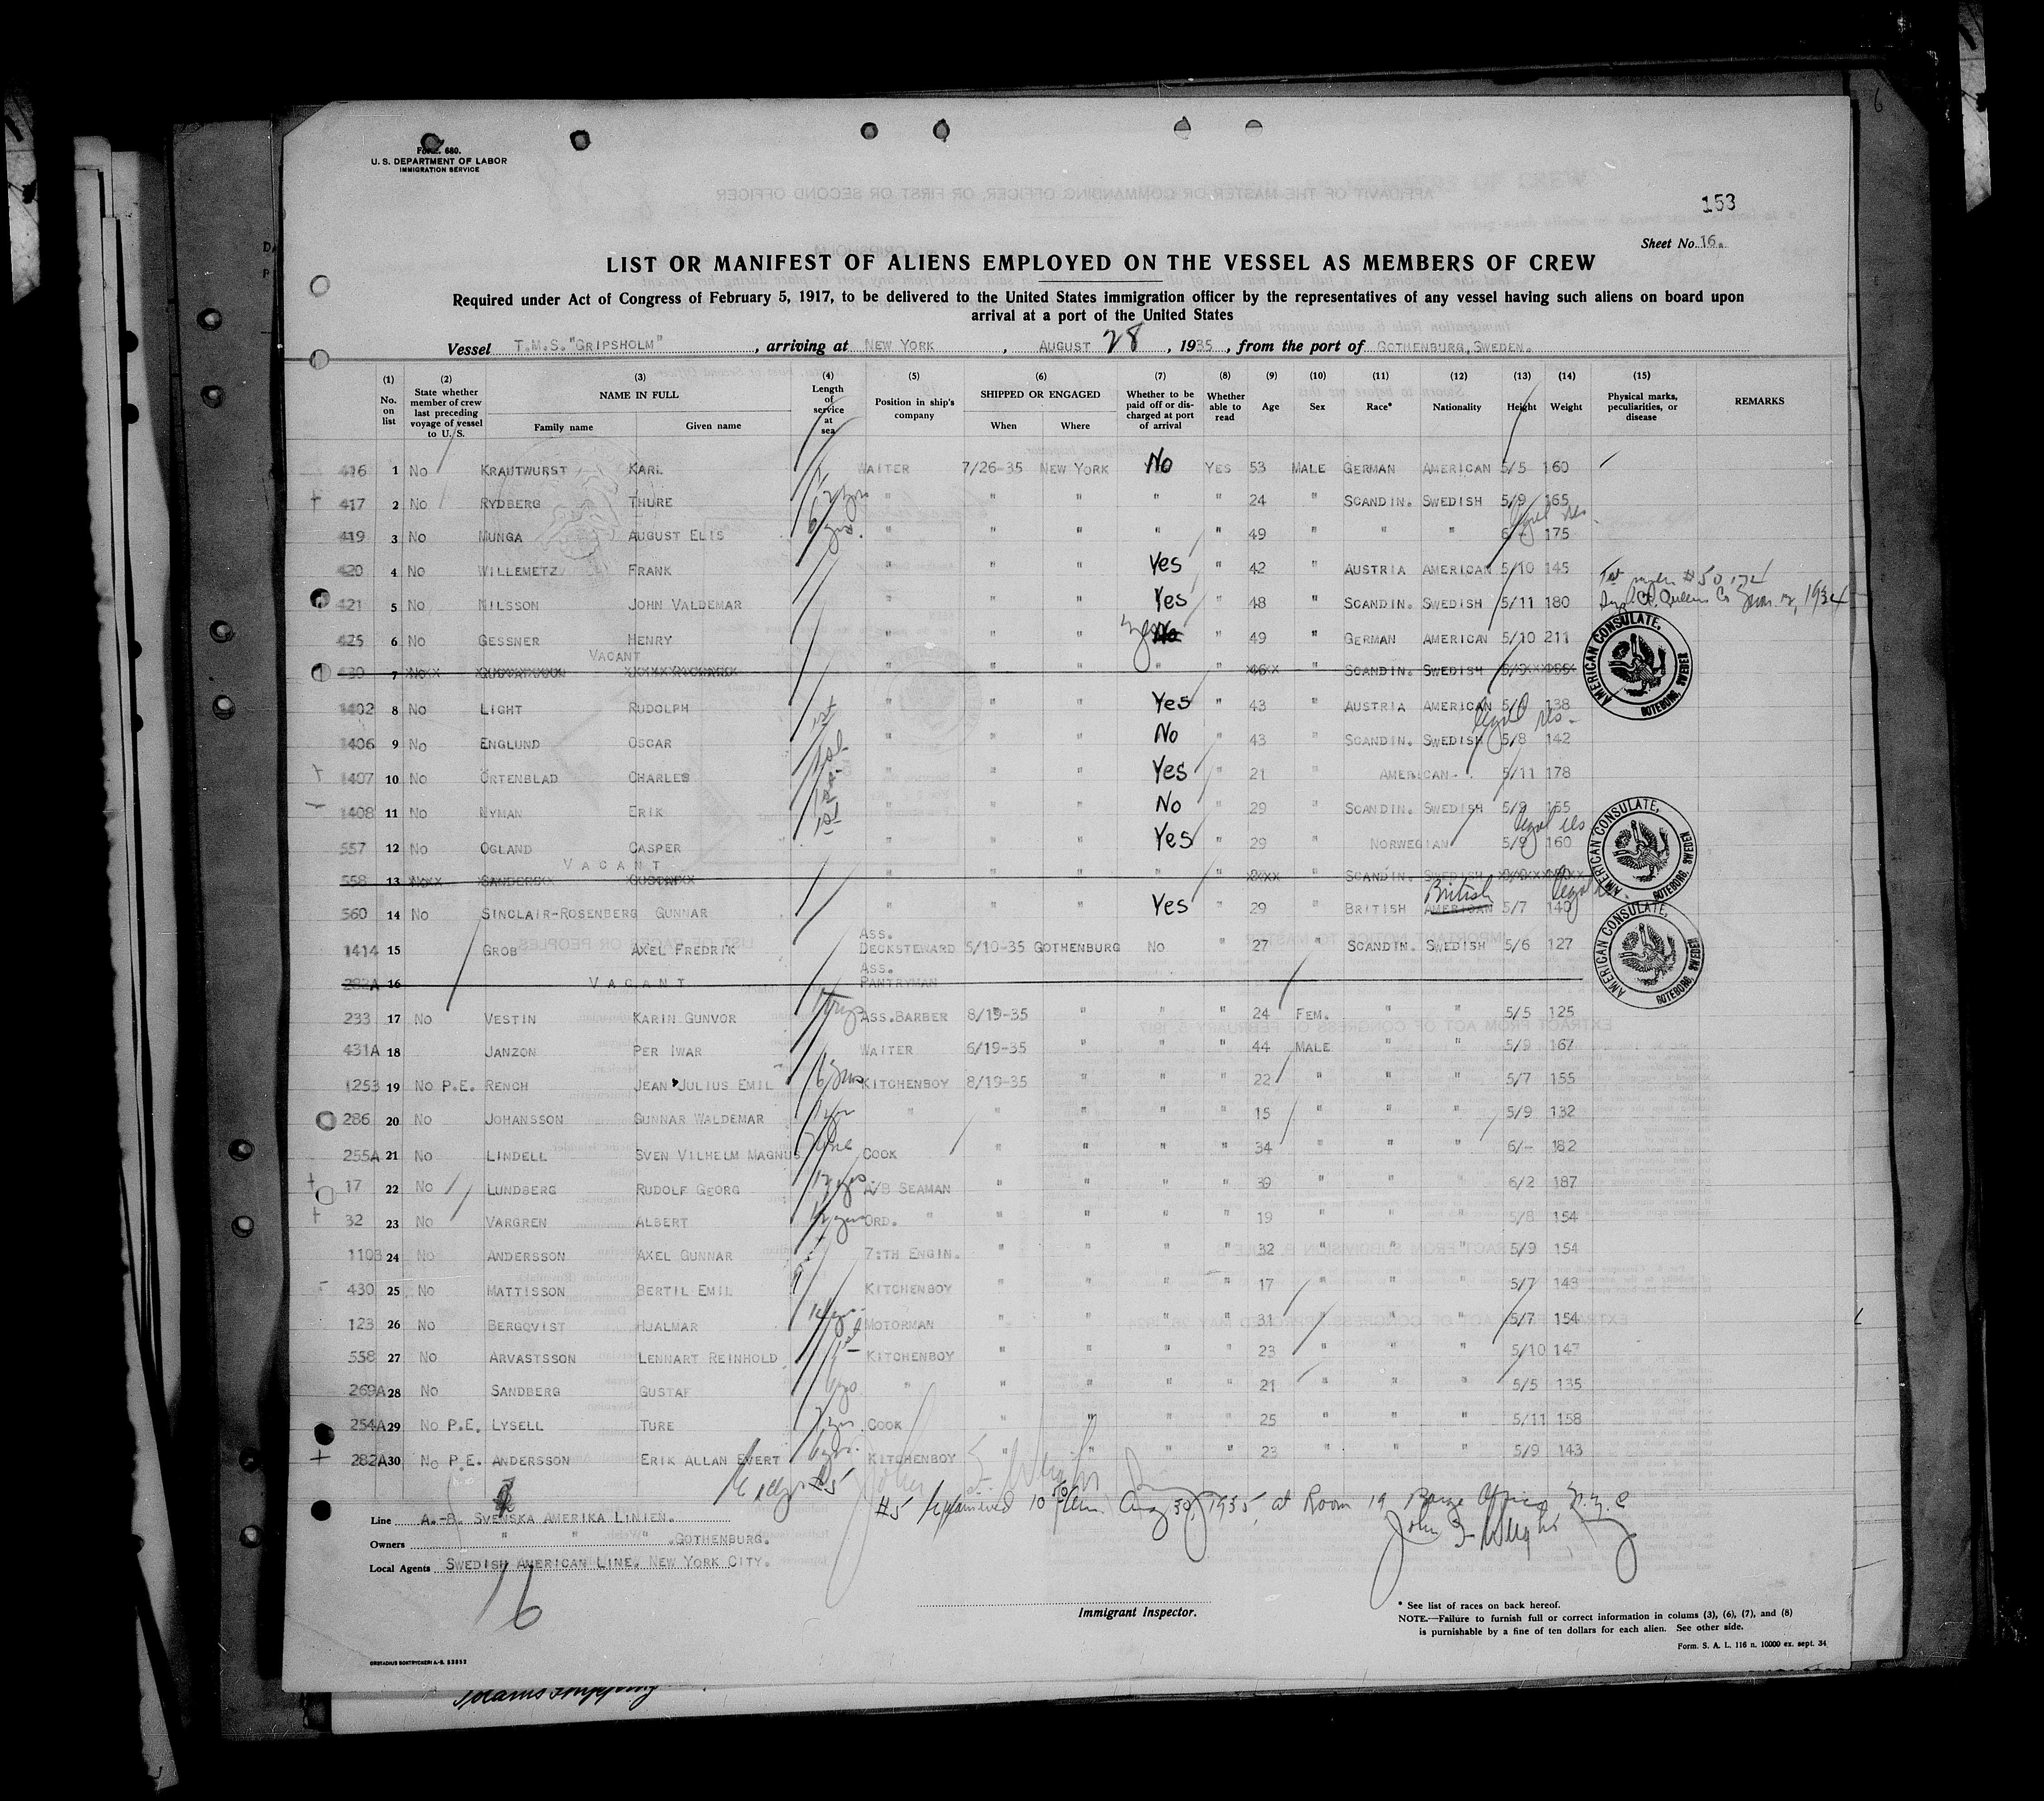 Form 680.
U. S. DEPARTMENT OF LABOR
IMMIGRATION SERVICE
153
Sheet No. 16.
LIST OR MANIFEST OF ALIENS EMPLOYED ON THE VESSEL AS MEMBERS OF CREW
Required under Act of Congress of February 5, 1917, to be delivered to the United States immigration officer by the representatives of any vessel having such aliens on board upon
arrival at a port of the United States
Vessel T.M.S."GRIPSHOLM", arriving at NEW YORK, AUGUST 28, 1935, from the port of GOTHENBURG, SWEDEN.
(1) No. on list (2) State whether member of crew last preceding voyage of vessel to U. S. (3) NAME IN FULL Family name Given name (4) Length of service at sea (5) Position in ship's company (6) SHIPPED OR ENGAGED When Where (7) Whether to be paid off or discharged at port of arrival (8) Whether able to read (9) Age (10) Sex (11) Race* (12) Nationality (13) Height (14) Weight (15) Physical marks, peculiarities, or disease REMARKS
416 1 NO KRAUTWURST KARL WAITER 7/26-35 NEW YORK No YES 53 MALE GERMAN AMERICAN 5/5 160
417 2 NO RYDBERG THURE " " " " " 24 " SCANDIN. SWEDISH 5/9 165
419 3 NO MUNGA AUGUST ELIS 6 yrs. " " " " " 49 " " " 6/- 175 legal res.
420 4 NO WILLEMETZ FRANK " " " Yes " 42 " AUSTRIA AMERICAN 5/10 145
421 5 NO NILSSON JOHN VALDEMAR " " " Yes " 48 " SCANDIN. SWEDISH 5/11 180 1934
425 6 NO GESSNER HENRY " " " yes No " 49 " GERMAN AMERICAN 5/10 211
7 VACANT " " " " " " SCANDIN. SWEDISH
1402 8 NO LIGHT RUDOLPH " " " Yes " 43 " AUSTRIA AMERICAN 138
1406 9 NO ENGLUND OSCAR 1st " " " No " 43 " SCANDIN. SWEDISH 5/8 142 legal res.
1407 10 NO ÖRTENBLAD CHARLES " " " Yes " 21 " AMERICAN. 5/11 178
1408 11 NO NYMAN ERIK " " " No " 29 " SCANDIN. SWEDISH 5/8 155
557 12 NO OGLAND CASPER 1st " " " Yes " 29 " NORWEGIAN 5/9 160 legal res
558 13 VACANT " " " " " " SCANDIN. SWEDISH
560 14 NO SINCLAIR-ROSENBERG GUNNAR " " " Yes " 29 " BRITISH AMERICAN British 5/7 140 legal
1414 15 GROB AXEL FREDRIK ASS. DECKSTEWARD 5/10-35 GOTHENBURG NO " 27 " SCANDIN. SWEDISH 5/6 127
282A 16 VACANT ASS. PANTRYMAN
233 17 NO VESTIN KARIN GUNVOR ASS.BARBER 8/19-35 " " " 24 FEM. " " 5/5 125
431A 18 JANZON PER IWAR WAITER 6/19-35 " " " 44 MALE " " 5/9 167
1253 19 NO P.E. RENCH JEAN JULIUS EMIL 6 yrs KITCHENBOY 8/19-35 " " " 22 " " " 5/7 155
286 20 NO JOHANSSON GUNNAR WALDEMAR 1 yr " " " " " 15 " " " 5/9 132
255A 21 NO LINDELL SVEN VILHELM MAGNUS COOK " " " " 34 " " " 6/- 182
17 22 NO LUNDBERG RUDOLF GEORG A/B SEAMAN " " " " 39 " " " 6/2 187
32 23 NO VARGREN ALBERT ORD. " " " " " 19 " " " 5/8 154
110B 24 NO ANDERSSON AXEL GUNNAR 7:TH ENGIN. " " " " 32 " " " 5/9 154
430 25 NO MATTISSON BERTIL EMIL KITCHENBOY " " " " 17 " " " 5/7 143
123 26 NO BERGQVIST HJALMAR MOTORMAN " " " " 31 " " " 5/7 154
558 27 NO ARVASTSSON LENNART REINHOLD 1st KITCHENBOY " " " " 23 " " " 5/10 147
269A 28 NO SANDBERG GUSTAF " " " " " 21 " " " 5/5 135
254A 29 NO P.E. LYSELL TURE 7 yrs COOK " " " " 25 " " " 5/11 158
282A 30 NO P.E. ANDERSSON ERIK ALLAN EVERT 6 yrs. KITCHENBOY " " " " 23 " " " 5/9 143
AMERICAN CONSULATE, GOTEBORG, SWEDEN
AMERICAN CONSULATE, GOTEBORG, SWEDEN
AMERICAN CONSULATE, GOTEBORG, SWEDEN
#5
#5 Examined 10 50 am Aug 30, 1935, at Room 19 Barge Office N.Y.C
Line A.-B. SVENSKA AMERIKA LINIEN.
Owners " " " GOTHENBURG.
Local Agents SWEDISH AMERICAN LINE. NEW YORK CITY.
16
Immigrant Inspector.
* See list of races on back hereof.
NOTE.—Failure to furnish full or correct information in colums (3), (6), (7), and (8)
is punishable by a fine of ten dollars for each alien. See other side.
Form. S. A. L. 116 n. 10000 ex. sept. 34